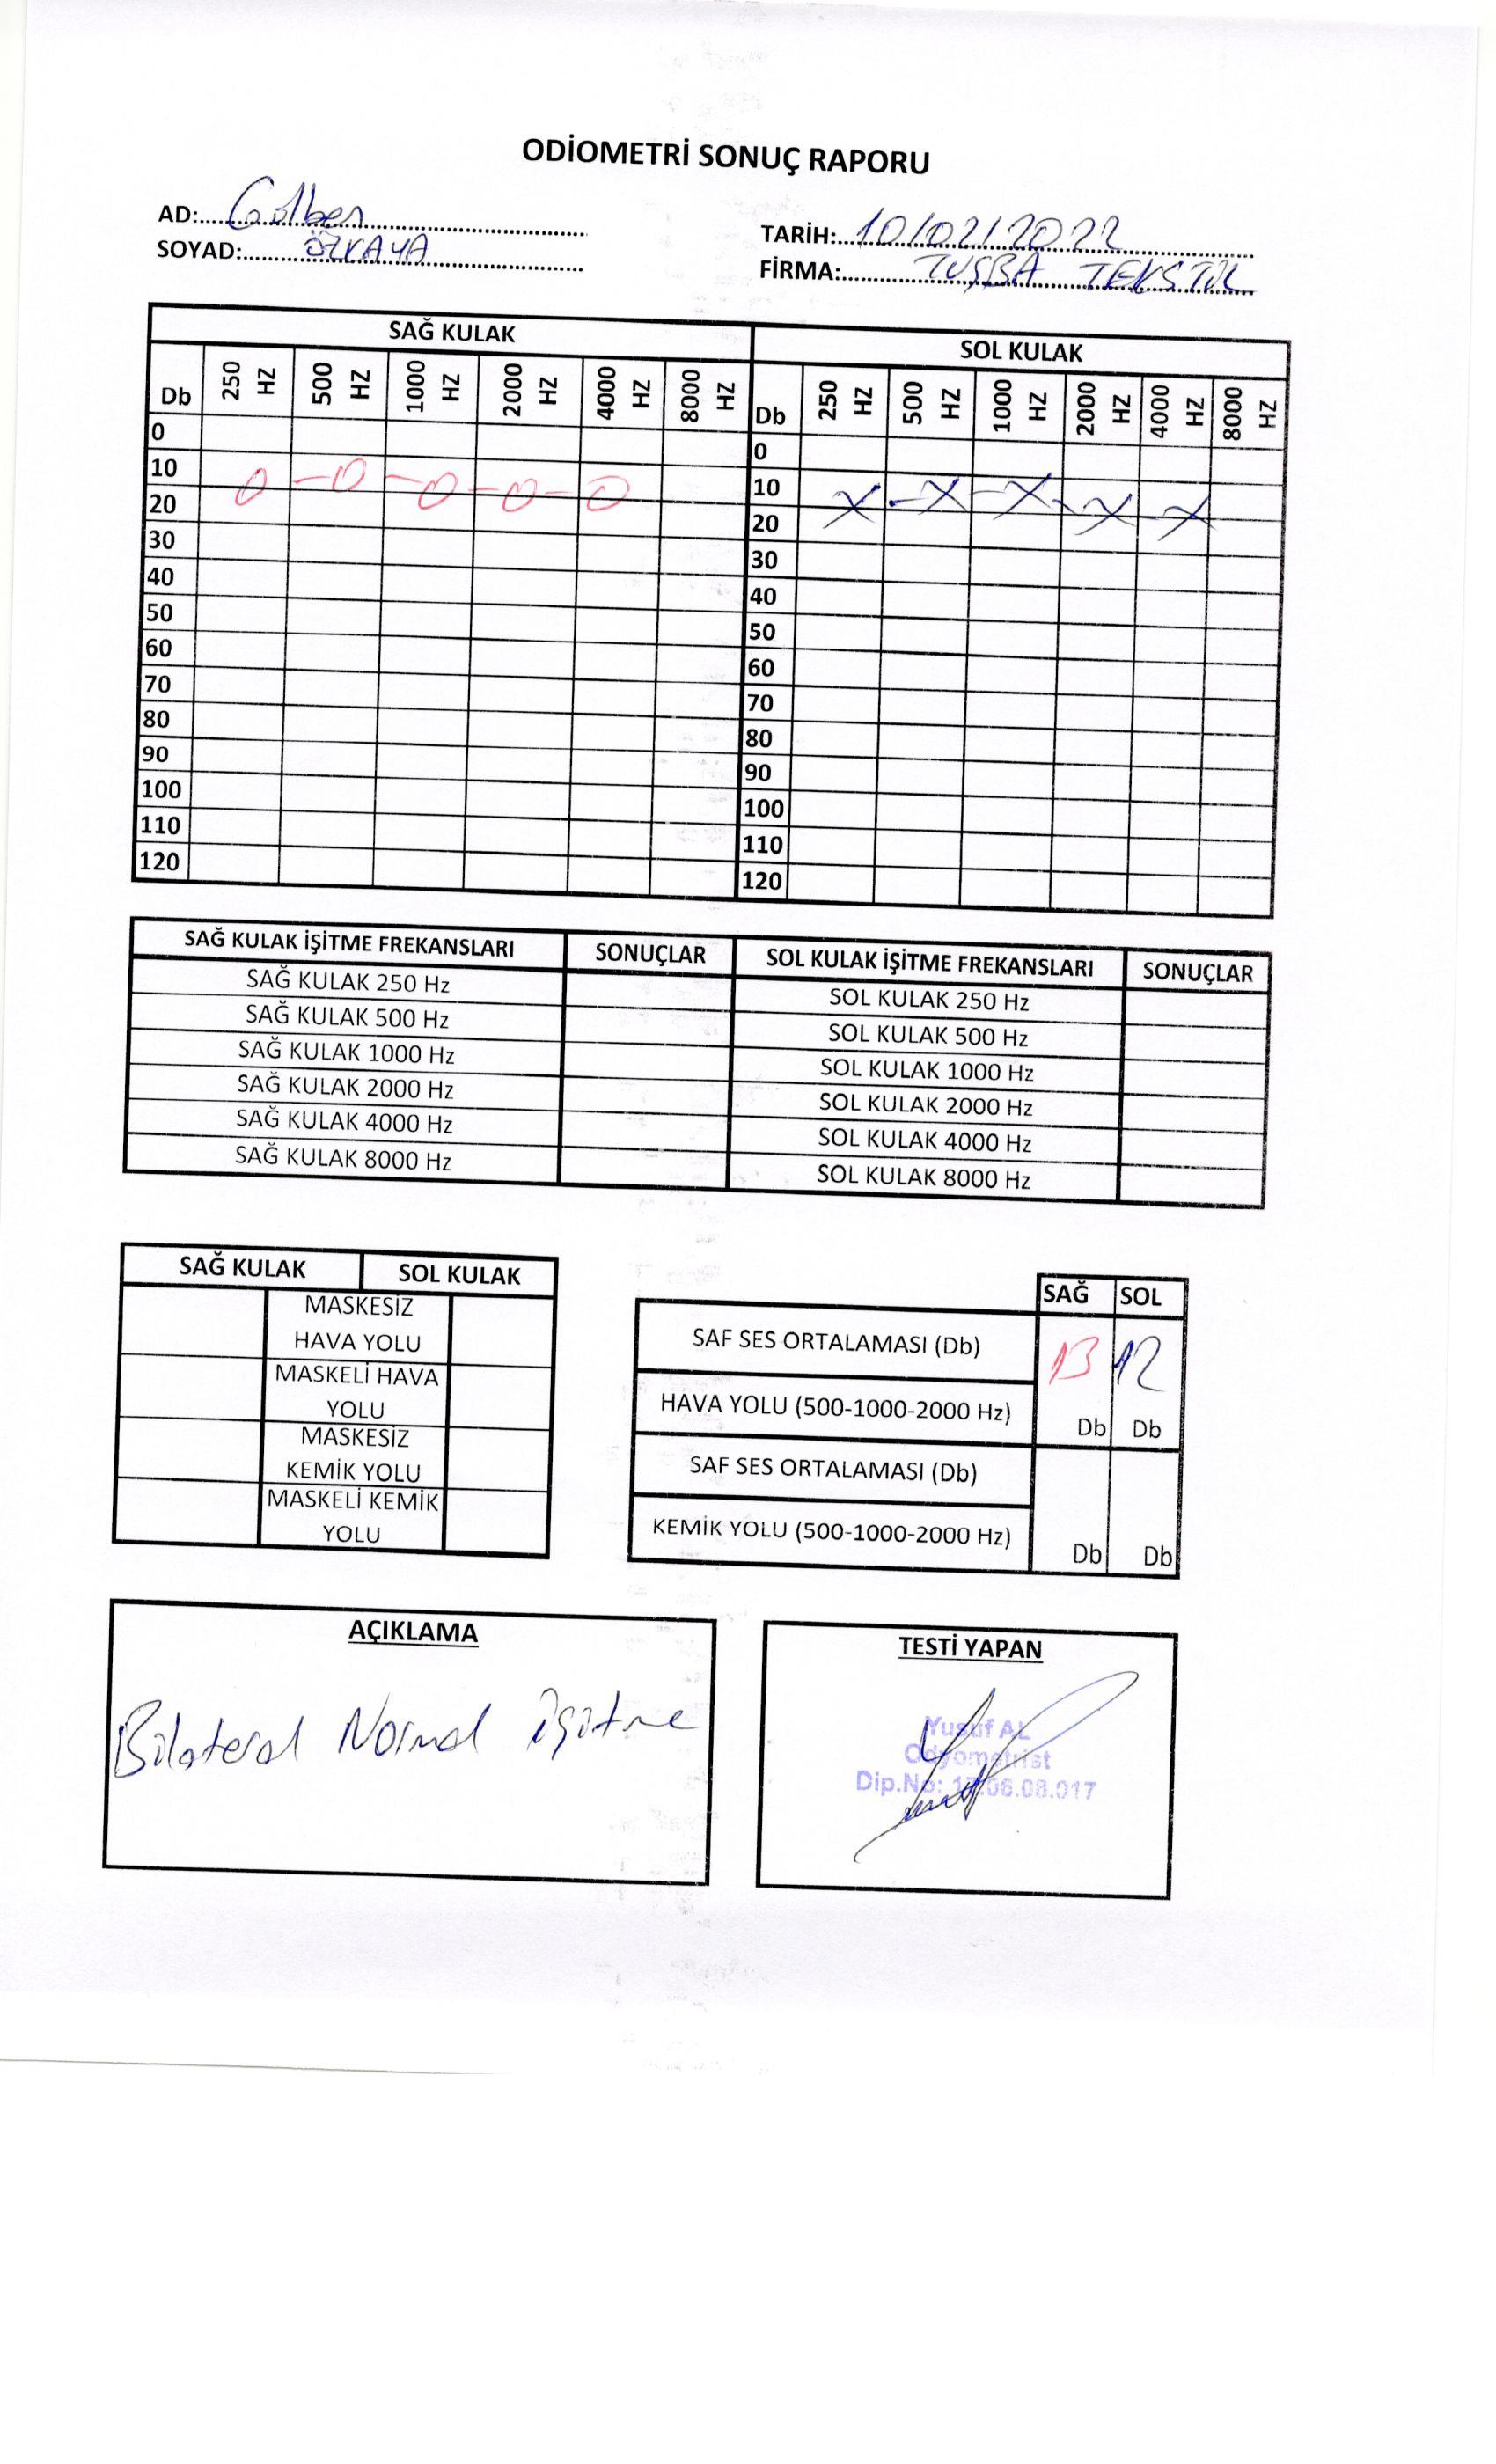 ODİOMETRİ SONUÇ RAPORU
AD: Gülben
SOYAD: ÖZKAYA
TARİH: 10/02/2022
FİRMA: TUŞBA TEKSTİL
SAĞ KULAK SOL KULAK
Db 250 HZ 500 HZ 1000 HZ 2000 HZ 4000 HZ 8000 HZ Db 250 HZ 500 HZ 1000 HZ 2000 HZ 4000 HZ 8000 HZ
0 0
10 10
20 20
30 30
40 40
50 50
60 60
70 70
80 80
90 90
100 100
110 110
120 120
SAĞ KULAK İŞİTME FREKANSLARI SONUÇLAR SOL KULAK İŞİTME FREKANSLARI SONUÇLAR
SAĞ KULAK 250 Hz SOL KULAK 250 Hz
SAĞ KULAK 500 Hz SOL KULAK 500 Hz
SAĞ KULAK 1000 Hz SOL KULAK 1000 Hz
SAĞ KULAK 2000 Hz SOL KULAK 2000 Hz
SAĞ KULAK 4000 Hz SOL KULAK 4000 Hz
SAĞ KULAK 8000 Hz SOL KULAK 8000 Hz
SAĞ KULAK SOL KULAK
MASKESİZ
HAVA YOLU
MASKELİ HAVA
YOLU
MASKESİZ
KEMİK YOLU
MASKELİ KEMİK
YOLU
SAĞ SOL
SAF SES ORTALAMASI (Db) 13 12
HAVA YOLU (500-1000-2000 Hz) Db Db
SAF SES ORTALAMASI (Db)
KEMİK YOLU (500-1000-2000 Hz) Db Db
AÇIKLAMA
Bilateral Normal işitme
TESTİ YAPAN
Yusuf AL
Odyometrist
Dip.No: 17.06.08.017